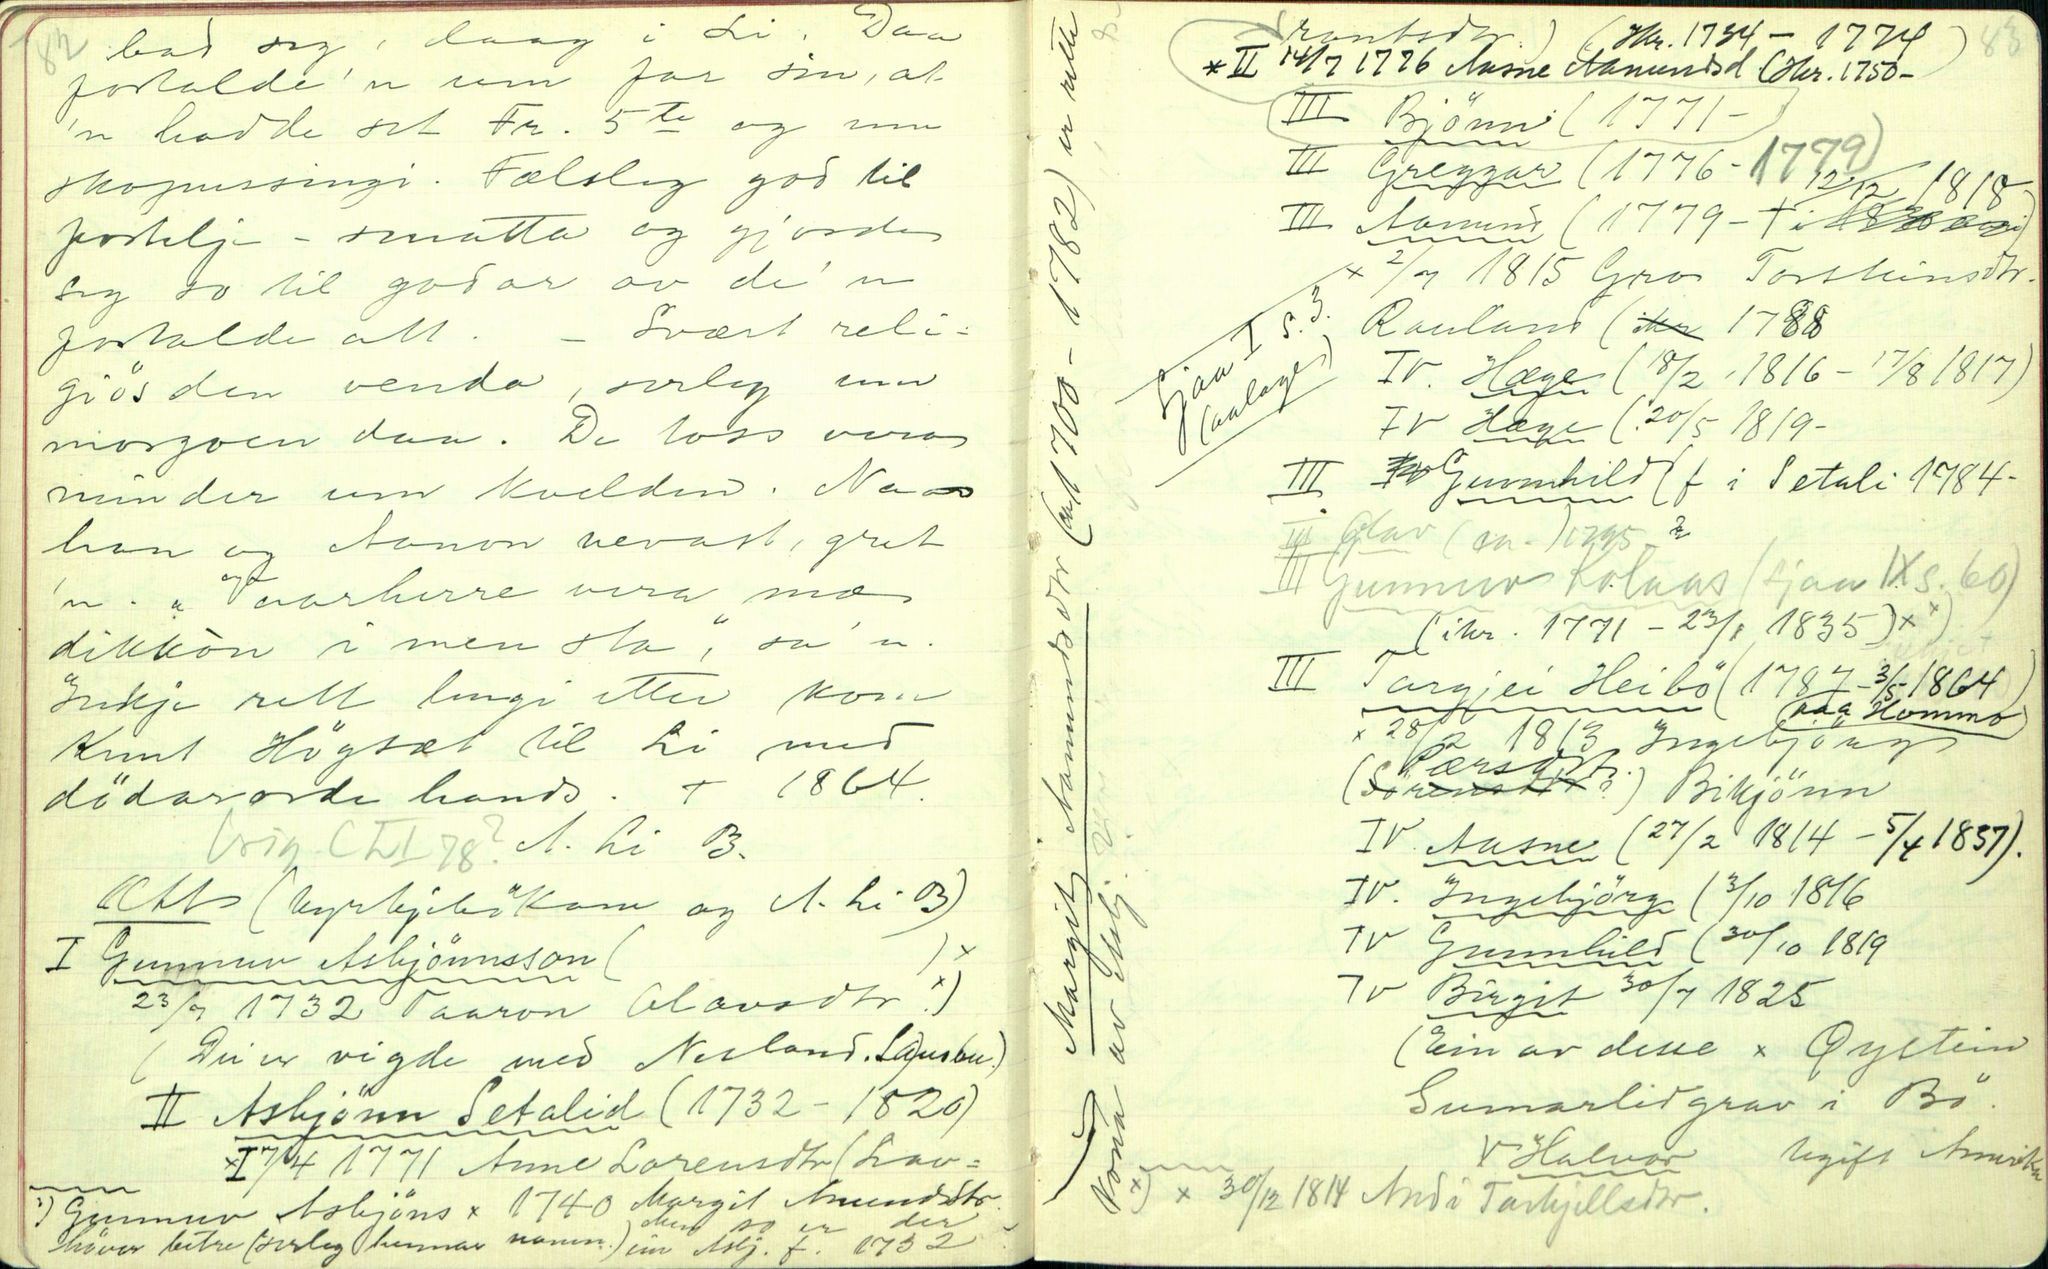 82
bad seg, daag i Li. Daa
fortalde 'n um far sin, at
'n hadde set Fr. 5te og um
skopussingi. Fælsleg god til
fortelje - smatta og gjorde
seg so til godar av de 'n
fortalde att. - Svært reli-
giös den venda, serleg um
morgoen daa. De toss vera
minder um kvelden. Naar
han og Aanon nevast, gret
'n. "og vaarherre vera mæ
dikkòn i men sta", sa 'n.
Inkje rett lengi etter kom
Knut Högsæt til Li med
dödarorde hands. † 1864.
(orig. C LI 78? A. Li B.
Ætt (kyrkjebökane og A. Li B)
I Gunnuv Asbjönnsson ( ) x
23/7 1732 Taaron Olavsdtr x)
(Dei er vigde med Nesland. Lausbu.)
II Asbjönn Setalid (1732 - 1820)
xI 7/4 1771 Anne Lorensdtr (Lav=
x) Gunnuv Asbjöns x 1740 Margit Amundsdtr.
höver betre (serleg hennar namn.) Men so er der
ein Asbj. f. 1732
Margit Aamundsdtr (ca 1700 - 1782) er rette
kona av Asbj.
83
rantsdtr.) (ikr. 1734 - 1774)
* II 14/7 1776 Aasne Aamundsd (ikr. 1750-
III Bjönn (1771-
III Greggar (1776 - 1779)
III Aamund (1779 - † i 12/12 1818
x 2/7 1815 Gro Torsteinsdtr.
Rauland (ikr 1788
Sjaa I s. 3.
(aalage)
IV. Hæge (18/2 1816 - 17/8 1817)
IV Hæge (20/5 1819-
III Gunnhild (f i Setali 1784-
III Olav (ca.) 1795 - ?
III Gunnuv Kolaas (sjaa IX s. 60)
(ikr. 1771 - 23/8 1835) x x)
III Targjei Heibö (1787 - 3/5 1864)
paa Hommo)
x 28/2 1813 Ingebjörg
Pærsdtr.
(Sörensdtr?) Bikjönn
IV. Aasne (27/2 1814 - 5/4 1837).
IV. Ingebjörg (3/10 1816
IV Gunnhild (30/10 1819
IV Birgit 30/7 1825
(Ein av desse x Øystein
Sumarlidgrav i Bö.
V Halvor ugift Amerika
x) x 30/12 1814 Andi Tarkjellsdtr.